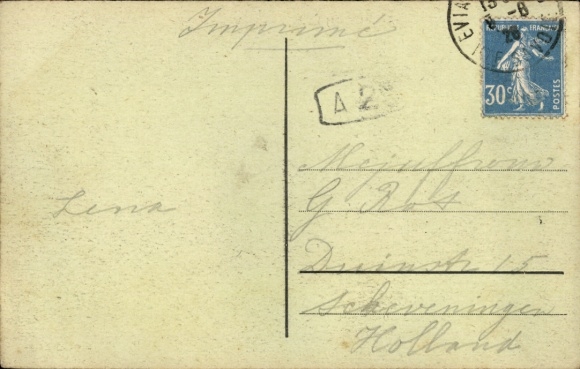 Imprimé
REPUBLIQUE FRANÇAISE
30c
POSTES
A 2
Mejuffrouw
G Bos
Lena
Duinstr 15
Scheveningen
Holland